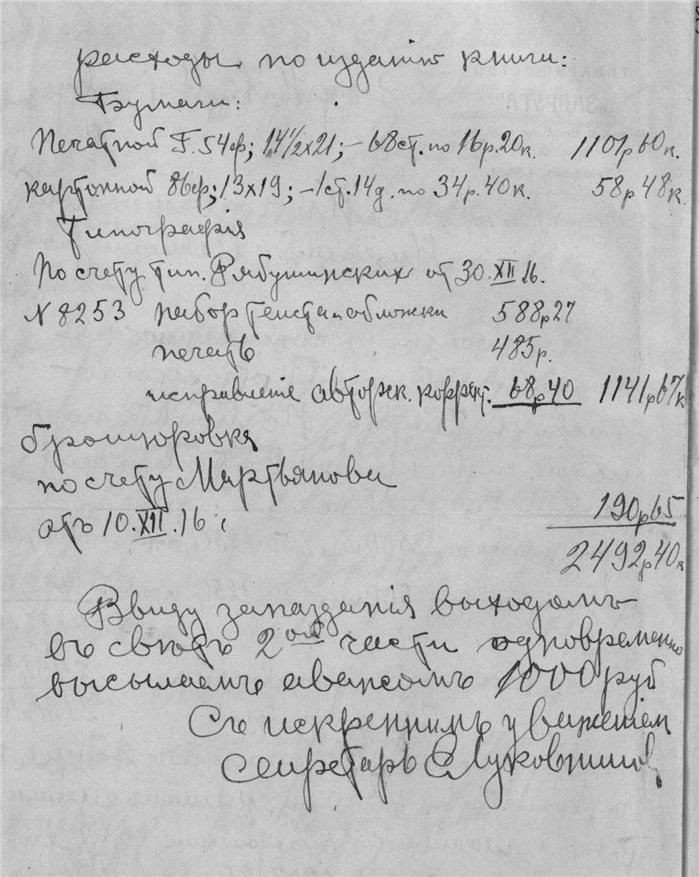 расходы по изданію книги:
Бумаги:
Печатной F. 54ф; 14½х21; – 68 ст. по 16 р. 20 к. 1101 р 60 к.
картонной 86ф; 13х19; – 1 ст. 14 д. по 34 р. 40 к. 58 р 48 к.
Типографія
По счету тип. Рябушинских от 30.XII 16.
N 8253 набор текста и обложки 588 р 27
печать 485 р.
исправленіе авторск. коррект. 68 р 40 1141 р 67 к
брошюровка
по счету Мартьянова
отъ 10.XII.16 190 р 65
2492 р 40 к
Ввиду запаздания выходомъ
въ светъ 2ой части одновременно
высылаемъ авансомъ 1000 руб
Съ искреннимъ уваженіем
Секретарь